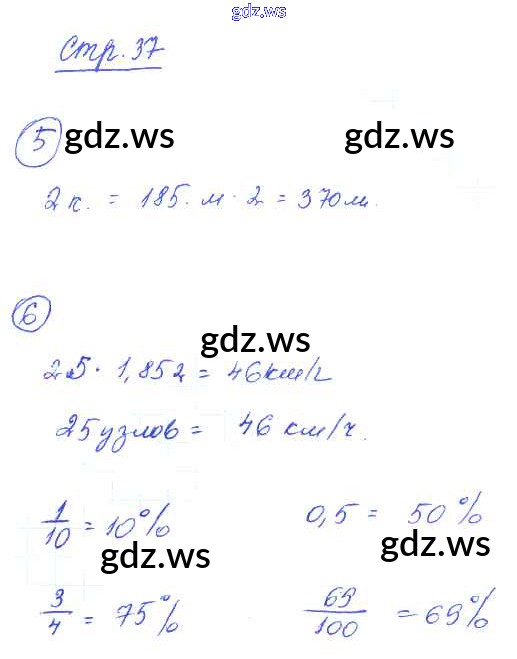 gdz.ws
Стр. 37
5
gdz.ws gdz.ws
2 к. = 185. м · 2 = 370 м.
6
gdz.ws
25 · 1,852 = 46 км/ч
25 узлов = 46 км/ч.
1/10 = 10% 0,5 = 50%
gdz.ws gdz.ws
3/4 = 75% 69/100 = 69%